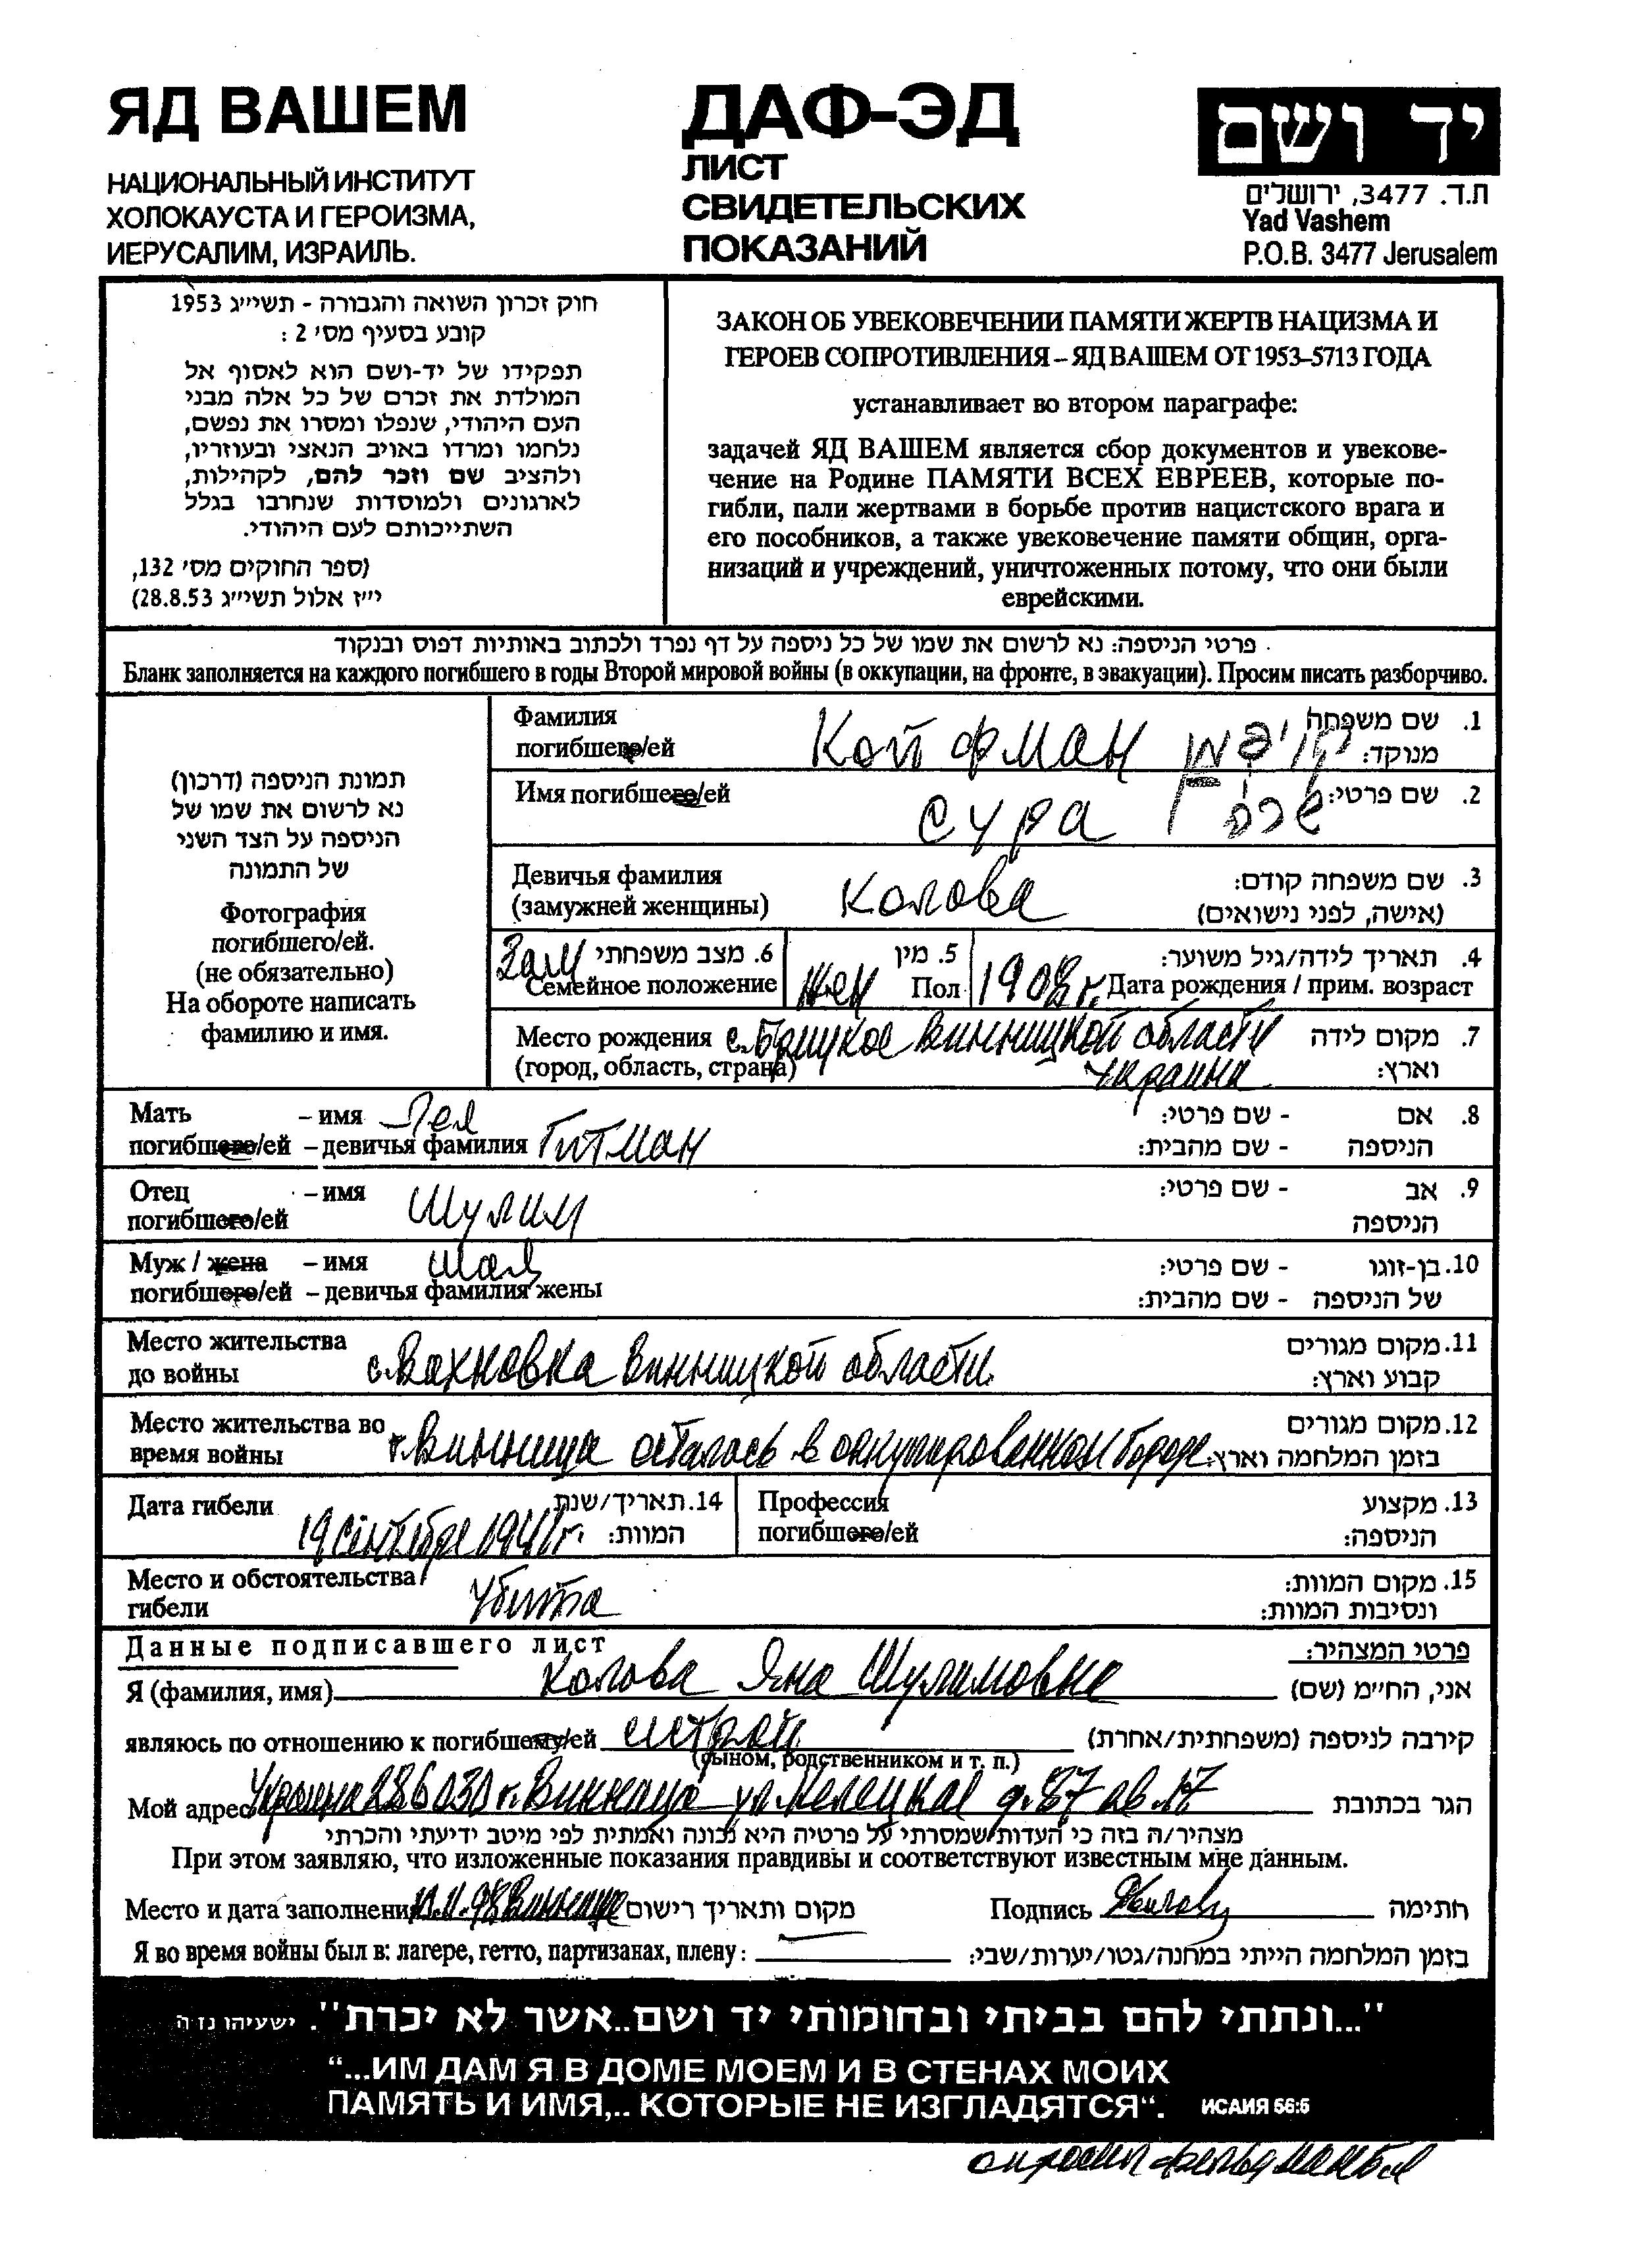 ЯД ВАШЕМ
НАЦИОНАЛЬНЫЙ ИНСТИТУТ
ХОЛОКАУСТА И ГЕРОИЗМА,
ИЕРУСАЛИМ, ИЗРАИЛЬ.
ДАФ-ЭД
ЛИСТ
СВИДЕТЕЛЬСКИХ
ПОКАЗАНИЙ
יד ושם
ת.ד. 3477, ירושלים
Yad Vashem
P.O.B. 3477 Jerusalem
חוק זכרון השואה והגבורה - תשי״ג 1953
קובע בסעיף מס׳ 2 :
תפקידו של יד-ושם הוא לאסוף אל
המולדת את זכרם של כל אלה מבני
העם היהודי, שנפלו ומסרו את נפשם,
נלחמו ומרדו באויב הנאצי ובעוזריו,
ולהציב שם וזכר להם, לקהילות,
לארגונים ולמוסדות שנחרבו בגלל
השתייכותם לעם היהודי.
(ספר החוקים מס׳ 132,
י״ז אלול תשי״ג 28.8.53)
ЗАКОН ОБ УВЕКОВЕЧЕНИИ ПАМЯТИ ЖЕРТВ НАЦИЗМА И
ГЕРОЕВ СОПРОТИВЛЕНИЯ – ЯД ВАШЕМ ОТ 1953–5713 ГОДА
устанавливает во втором параграфе:
задачей ЯД ВАШЕМ является сбор документов и увекове-
чение на Родине ПАМЯТИ ВСЕХ ЕВРЕЕВ, которые по-
гибли, пали жертвами в борьбе против нацистского врага и
его пособников, а также увековечение памяти общин, орга-
низаций и учреждений, уничтоженных потому, что они были
еврейскими.
פרטי הניספה: נא לרשום את שמו של כל ניספה על דף נפרד ולכתוב באותיות דפוס ובנקוד
Бланк заполняется на каждого погибшего в годы Второй мировой войны (в оккупации, на фронте, в эвакуации). Просим писать разборчиво.
תמונת הניספה (דרכון)
נא לרשום את שמו של
הניספה על הצד השני
של התמונה
Фотография
погибшего/ей.
(не обязательно)
На обороте написать
фамилию и имя.
Фамилия
погибшего/ей Койфман קויפמן
1. שם משפחה
מנוקד:
Имя погибшего/ей Сура שרה 2. שם פרטי:
Девичья фамилия
(замужней женщины) Колова
3. שם משפחה קודם:
(אישה, לפני נישואים)
Зам 6. מצב משפחתי
Семейное положение
жен 5. מין
Пол
1908 г. 4. תאריך לידה/גיל משוער:
Дата рождения / прим. возраст
Место рождения с. Винницкой области 7. מקום לידה
(город, область, страна) Украина וארץ:
Мать – имя Лея 8. אם - שם פרטי:
погибшего/ей – девичья фамилия Гитман הניספה - שם מהבית:
Отец – имя Шулим 9. אב - שם פרטי:
погибшего/ей הניספה
Муж / жена – имя 10. בן-זוגו - שם פרטי:
погибшего/ей – девичья фамилия жены של הניספה - שם מהבית:
Место жительства 11. מקום מגורים
до войны с. Вахновка Винницкой области קבוע וארץ:
Место жительства во 12. מקום מגורים
время войны г. Винница осталась в оккупированном городе בזמן המלחמה וארץ:
Дата гибели 19 сентября 14. תאריך/שנת
המוות:
Профессия 13. מקצוע
погибшего/ей הניספה:
Место и обстоятельства 15. מקום המוות:
гибели Убита ונסיבות המוות:
Данные подписавшего лист פרטי המצהיר:
Я (фамилия, имя) Колова Яна Шулимовна אני, החי״מ (שם)
являюсь по отношению к погибшему/ей сестрой קירבה לניספה (משפחתית/אחרת)
(сыном, родственником и т. п.)
Мой адрес Украина 286030 г. Винница ул. Келецкая д. 87 кв. 17 הגר בכתובת
מצהיר/ה בזה כי העדות שמסרתי על פרטיה היא נכונה ואמתית לפי מיטב ידיעתי והכרתי
При этом заявляю, что изложенные показания правдивы и соответствуют известным мне данным.
Место и дата заполнения Винница מקום ותאריך רישום Подпись חתימה
Я во время войны был в: лагере, гетто, партизанах, плену: בזמן המלחמה הייתי במחנה/גטו/יערות/שבי:
"...ונתתי להם בביתי ובחומותי יד ושם..אשר לא יכרת". ישעיהו נז ה
"...ИМ ДАМ Я В ДОМЕ МОЕМ И В СТЕНАХ МОИХ
ПАМЯТЬ И ИМЯ,.. КОТОРЫЕ НЕ ИЗГЛАДЯТСЯ". ИСАИЯ 56:5